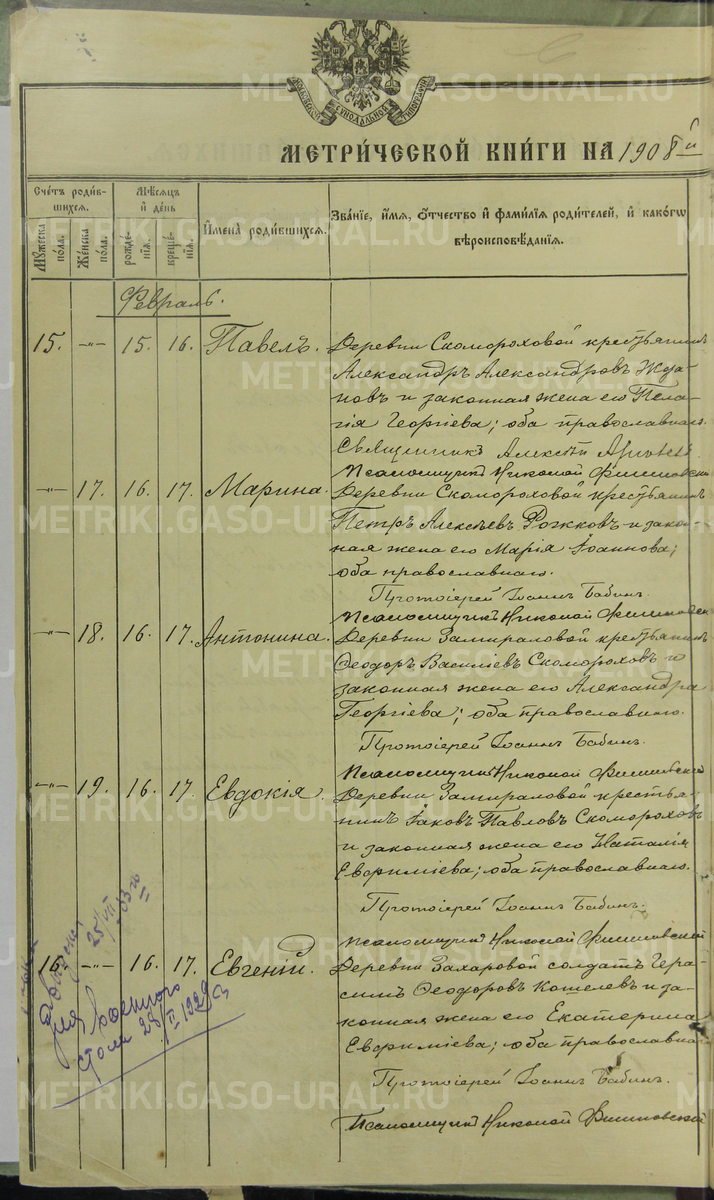 МОСКОВСКОЙ СѴНОДАЛЬНОЙ ТИПОГРАФІИ
МЕТРИ́ЧЕСКОЙ КНИ́ГИ НА 1908й
Сче́тъ роди́в-
шихся.
Му́жеска по́ла.
Же́нска по́ла.
Мѣ́сяцъ
и҆ де́нь
рожде́-
нїя.
креще́-
нїя.
И҆мена̀ роди́вшихся.
Зва́нїе, и҆́мя, ѻ҆́тчество и҆ фами́лїя роди́телей, и҆ како́гѡ
вѣроисповѣ́данїя.
Февраль.
15. -„- 15. 16. Павелъ. Деревни Скомороховой крестьянинъ
Александръ Александровъ Жда-
новъ и законная жена его Пела-
гія Георгіева; оба православнаго.
Священникъ Алексѣй
Псаломщикъ Николай
-„- 17. 16. 17. Марина. Деревни Скомороховой крестьянинъ
Петръ Алексѣевъ Рожковъ и закон-
ная жена его Марія Іоаннова;
оба православнаго.
Протоіерей Іоаннъ Бабинъ.
Псаломщикъ Николай
-„- 18. 16. 17. Антонина. Деревни Замираловой крестьянинъ
Ѳеодоръ Василіевъ Скомороховъ и
законная жена его Александра
Георгіева; оба православнаго.
Протоіерей Іоаннъ Бабинъ.
Псаломщикъ Николай
-„- 19. 16. 17. Евдокія. Деревни Замираловой крестья-
нинъ Іаковъ Павловъ Скомороховъ
и законная жена его Наталія
Евфиміева; оба православнаго.
Протоіерей Іоаннъ Бабинъ.
Псаломщикъ Николай
16. -„- 16. 17. Евгеній. Деревни Захаровой солдатъ Гера-
симъ Ѳеодоровъ Кошелевъ и за-
конная жена его Екатерина
Евфиміева; оба православнаго
Протоіерей Іоаннъ Бабинъ.
Псаломщикъ Николай
для Военного
стола 28/II 1929
METRIKI.GASO-URAL.RU